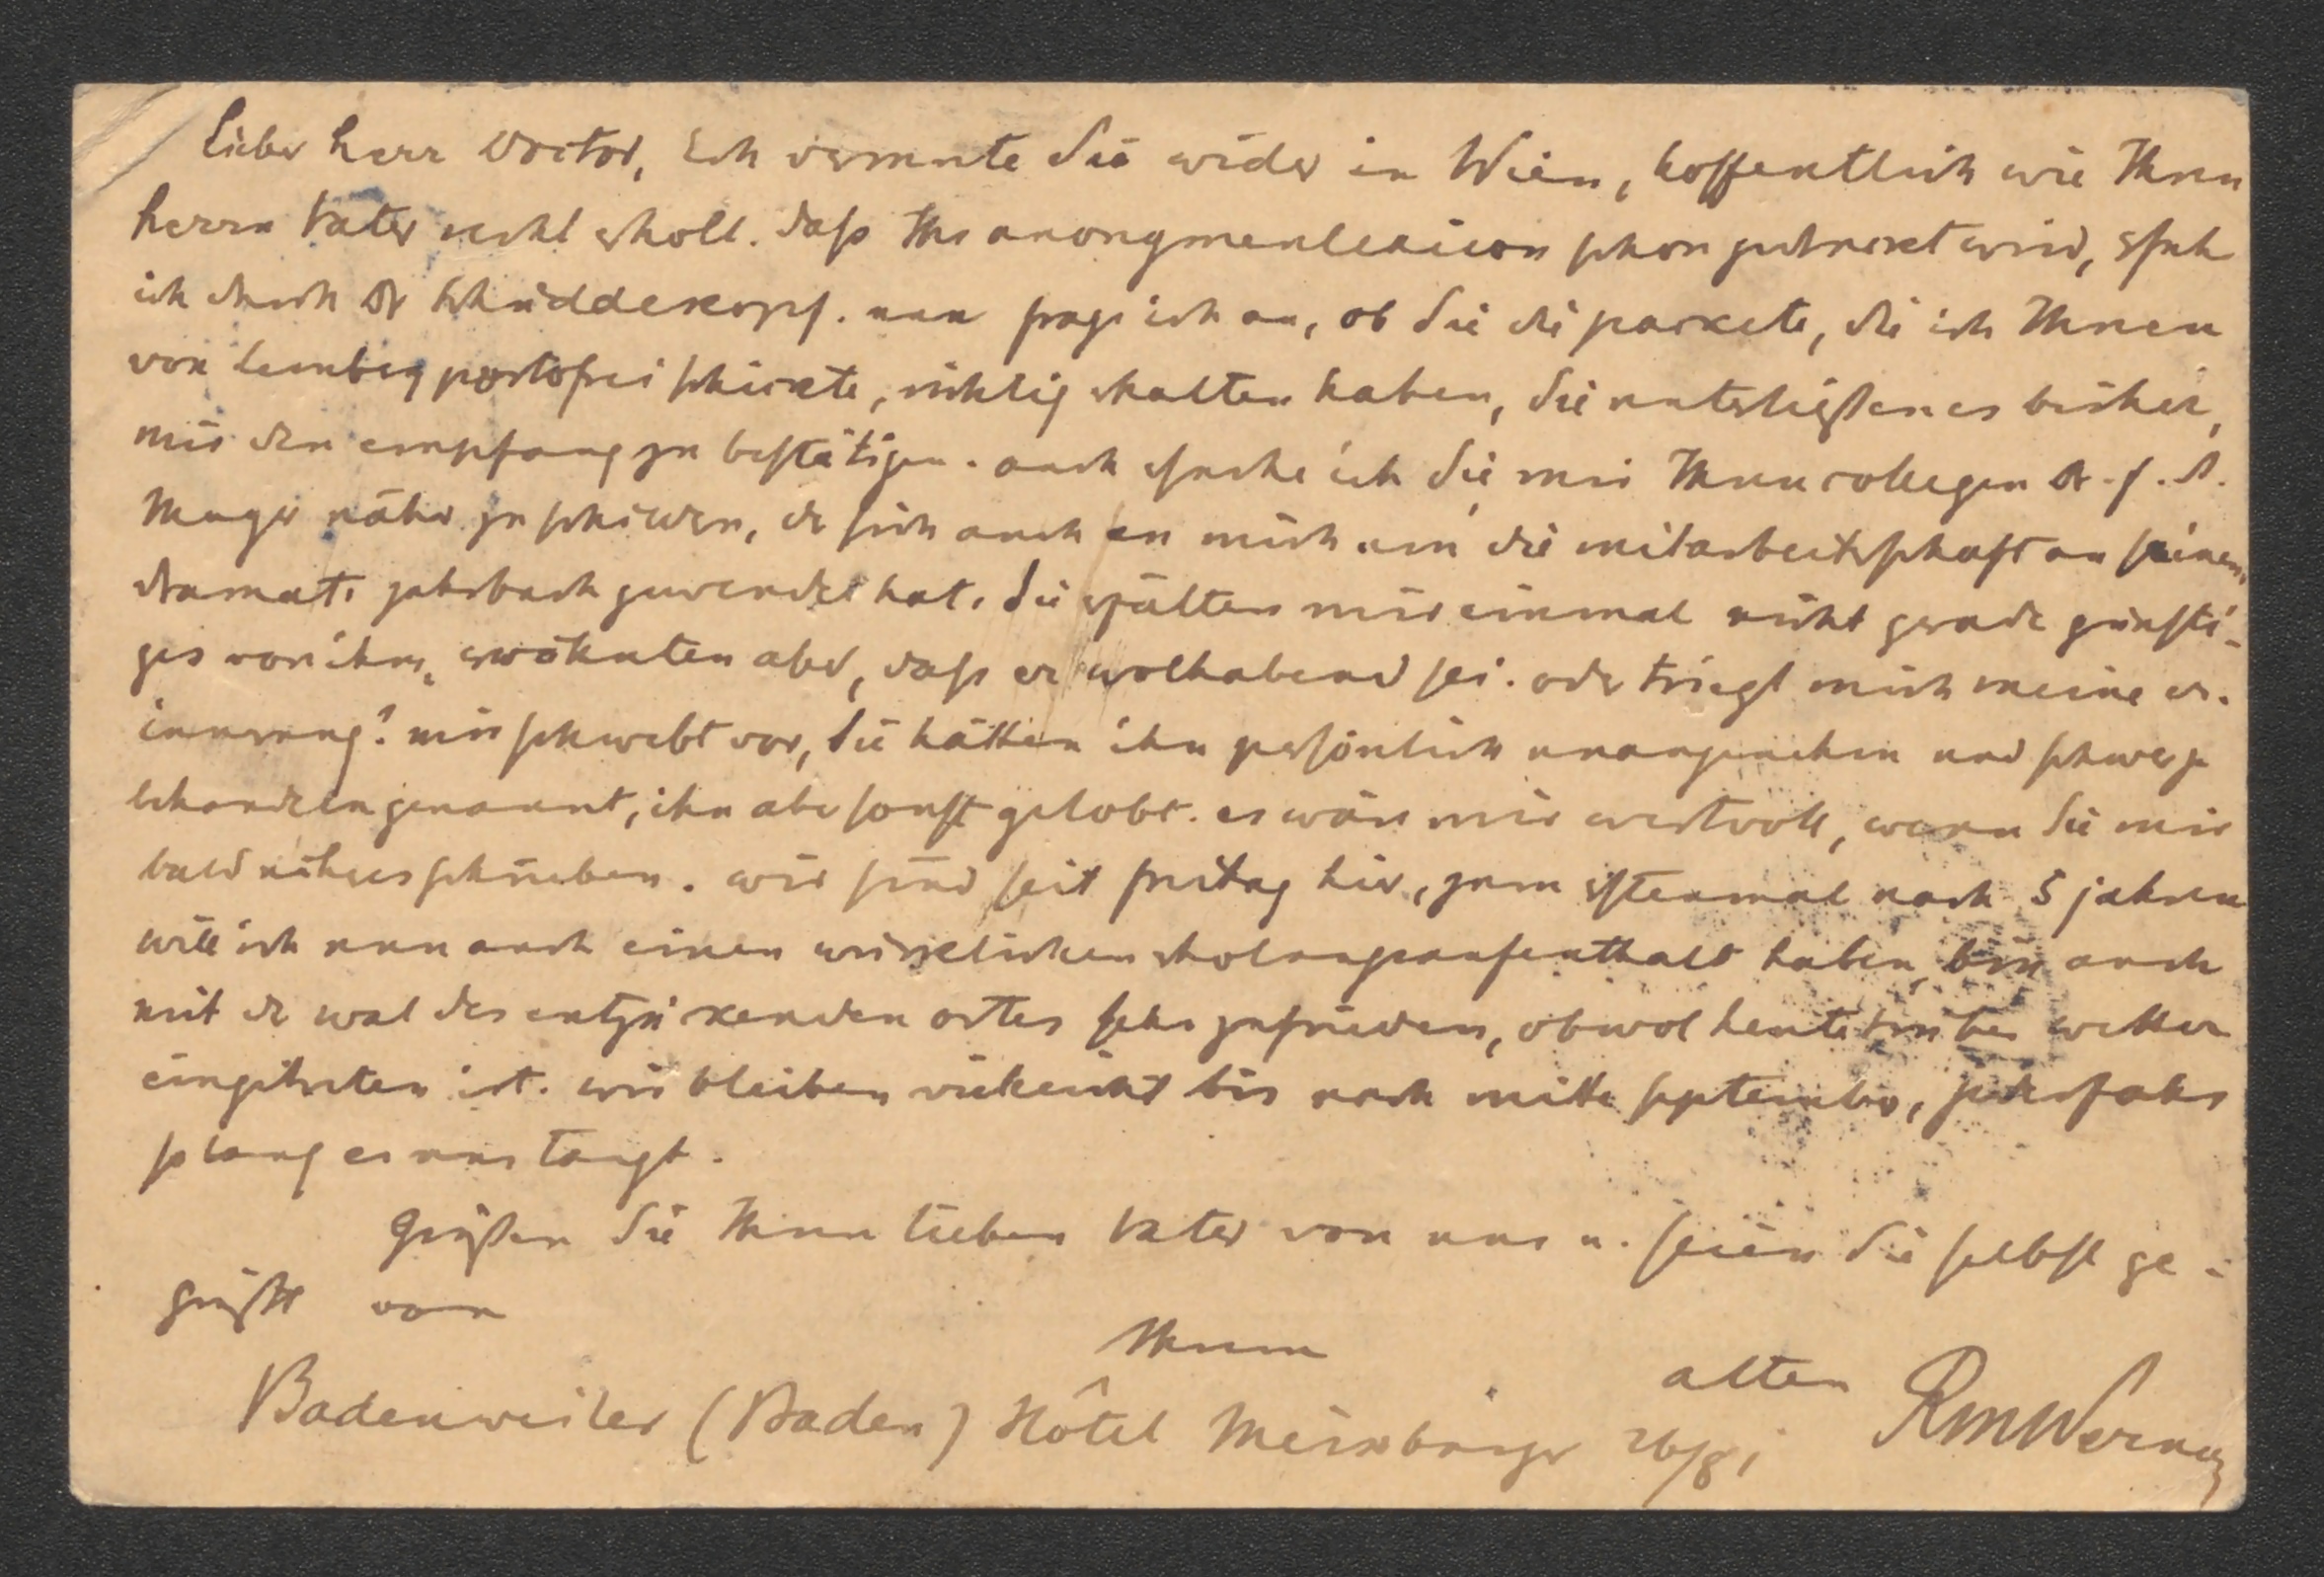 Lieber herr Doctor, Ich vermute Sie wider in Wien, hoffentlich wie Ihren
herrn Vater recht erholt. daſs Ihr anonymenlexicon ſchon gedruckt wird, erfuhr
ich durch Dr Schüddekopf. nun frage ich an, ob Sie die packete, die ich Ihnen
von Lemberg portofrei ſchickte, richtig erhalten haben, Sie unterlieſsen es bisher,
mir den empfang zu beſtätigen. auch erſuche ich Sie, mir Ihren collegen Dr. f. A.
Mayer näher zu ſchildern, der ſich auch an mich um die mitarbeiterſchaft an ſeinem
dramat. jahrbuch gewendet hat. Sie erzälten mir einmal nicht gerade günſti-
ges von ihm, erwähnten aber, daſs er wolhabend ſei. oder triegt mich meine er-
innerung? mir ſchwebt vor, Sie hätten ihn perſönlich unangenehm und ſchwer zu
behandeln genannt, ihn aber ſonſt gelobt. es wäre mir wertvoll, wenn Sie mir
bald näheres ſchrieben. wir ſind ſeit freitag hier, zum erſtenmal nach 5 jahren
will ich nun auch einen wirklichen erholungsaufenthalt haben, bin auch
mit der wal des entzückenden ortes ſehr zufrieden, obwol heute trübes wetter
eingetreten ist. wir bleiben vielleicht bis nach mitte ſeptember, jedesfalls
ſo lang es uns taugt.
Grüſsen Sie Ihren lieben Vater von uns u. ſeien Sie ſelbſt ge-
grüſst von
Ihrem
alten RMWerner
Badenweiler (Baden) Hôtel Meissburger 26/8